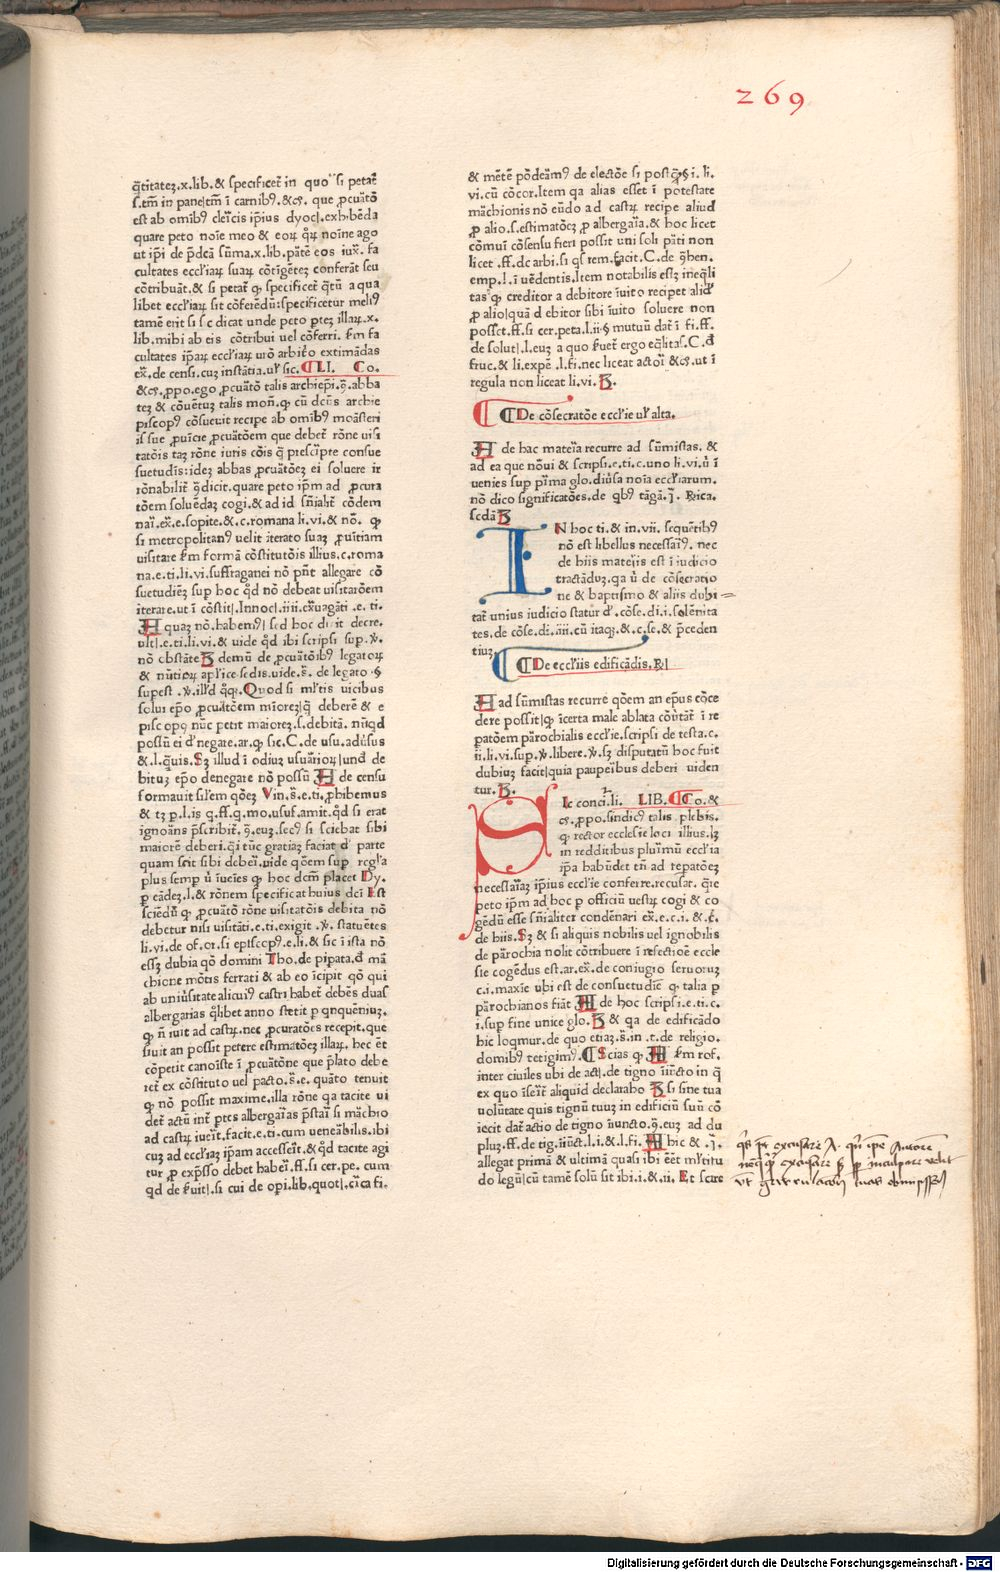 269
q̄titatez.x.lib.& specificet̄ in quo si petat̄
s.tm̄ in pane|tm̄ ī carnibꝰ.&cꝫ. que ꝓcuātō
est ab omībꝰ cleīcis ip̄ius dyoc|.exhibēda
quare peto noīe meo & eoꝝ q̄ꝝ noīne ago
ut ip̄i de p̄dcā sūma.x.lib.pātē eos iux̄. fa
cultates eccl'iaꝝ suaꝝ cōtīgētez conferāt seu
cōtribuāt.& si petat̄ ꝙ specificet̄ q̄tū a qua
libet eccl'iaꝝ sit cōferēdū:specificetur meliꝰ
tamē erit si sc dicat unde peto ptez illaꝝ.x.
lib.mihi ab eis cōtribui uel cōferri. ẜm fa
cultates ip̄aꝝ eccl'iaꝝ uro arbit̄o extimādas
ex̄. de censi. cuz instātia.ul' sic. CLI. Co.
&cꝫ.ꝓpo.ego ꝓcuātō talis archiep̄i.q̄.abba
tez & cōuētuz talis moñ.ꝙ cū dcūs archie
piscopꝰ cōsueuit recipe ab omībꝰ moāsteri
is sue ꝓuīcie ꝓcuātōem que debet̄ rōne uisi
tatōis taz rōne iuris cōis q̄ prescīpte consue
suetudīs:idez abbas ꝓcuātōez ei soluere ir
rōnabilit̄ ꝯdicit.quare peto ip̄m ad ꝓcura
tōem soluēdaz cogi.& ad id sñialit̄ cōdem
nai.ex̄.e.sopite.&.c.romana li.vi.& nō. ꝙ
si metropolitanꝰ uelit iterato suaz ꝓuītiam
uisitare ẜm formā cōstitutōis illius.c.roma
na.e.ti.li.vi.suffraganei nō pn̄t allegare cō
suetudiēz sup hoc q̄d nō debeat uisitatōem
iterare.ut ī cōstit|.Innoc|.iiii.ex̄uagāti .e. ti.
H quaz nō.habemꝰ| sed hoc dicit decre.
ult|.e.ti.li.vi.& uide q̄d ibi scripsi sup.ꝟ.
nō obstāte B demū de ꝓcuātōibꝰ legatoꝝ
& nūtioꝝ apl'ice sedis.uide.s̄. de legato .§
supest .ꝟ.ill'd q̄qꝫ. Quod si mītis uicibus
solui ep̄o ꝓcuātōem mīorez|q̄ deberē & e
piscopꝰ nūc petit maiorez.s.debitā. nūqd
possū ei d'negare.ar.ꝙ sic.C.de usu.aduſus
&.l.q̄uis.Sꝫ illud ī odiuꝫ usuārioꝝ|und de
bituz ep̄o denegare nō possū H de censu
formauit sil'em qōez Vin.s̄.e.ti.ꝓhibemus
& tꝫ p.l.is q.ff.q.mo.usuf.amit.q̄d si erat
ignoās p̄scribit̄. ꝯ.euz.secꝰ si sciebat sibi
maiorē deberi.qi tūc gratiaz faciat d' parte
quam scit sibi debeī.uide qōem sup regl'a
plus semp ū iucīes ꝙ hoc dcm̄ placet Dy.
ꝑ eādez.l.& rōnem specificat huius dcī Est
sciēdū ꝙ ꝓcuātō rōne uisitatōis debita nō
debetur nisi uisitāti.e.ti.exigit .ꝟ. statuētes
li.vi.de of.or.si episcopꝰ.e.li.& sic ī ista nō
essꝫ dubia qō domini Tho.de pipata.d mā
chione mōtis ferrati & ab eo īcipit qō qui
ab uniūsitate alicuiꝰ castri habet debēs duas
albergarias q̄libet anno stetit p qnquēniuz.
ꝙ ñ iuit ad castꝝ.nec ꝓcuratōes recepit.que
siuit an possit petere estimatōez illaꝝ. hec ēt
cōpetit canoīste ī ꝓcuātōne que p̄lato debe
ret̄ ex cōstituto uel pacto.s̄.e. quāto tenuit
ꝙ nō possit maxime.illa rōne qa tacite ui
det̄ actū int̄ ptes albergaīas p̄staī si māchio
ad castꝝ iueīt.facit.e.ti.cum ueneābilis.ibi
cuꝫ ad eccl'iaꝫ ip̄am accesseīt.& q̄d tacite agi
tur ꝓ exp̄sso debet habeī.ff.si cer.pe. cum
qd de ẜuit|.si cui de opi.lib.quot|.cīca fi.
& mētē pōdeāmꝰ de electōe si post q̄ꝫ§ i. li.
vi.cū cōcor.Item qa alias esset ī potestate
māchionis nō eūdo ad castꝝ recipe aliud
ꝓ alio.s.estimatōeꝫ ꝓ albergaīa.& hoc licet
cōmuī cōsensu fieri possit uni soli pāti non
licet .ff.de arbi.si qs rem.facit.C.de ꝯhen.
emp.l.ī uēdentis.Item notabilis essꝫ ineq̄li
tas ꝙ creditor a debitore īuito recipet alid'
ꝓ alio|quā debitor sibi īuito soluere non
posset.ff.si cer.peta.l.ii§ mutuū dat̄ ī fi.ff.
de solut|.l.euz a quo ẜuet̄ ergo eq̄litas.C.d
fruc.& li.expē .l.fi.nec liceat actoī &cꝫ.ut ī
regula non liceat li.vi. B.
C De cōsecratōe eccl'ie ul' alta.
H de hac mateīa recurre ad sūmistas. &
ad ea que nōui & scripsi.e.ti.c.uno li.vi.ū ī
uenies sup p̄ima glo.diūsa noīa eccl'iarum.
nō dico significatōes.de qbꝰ tāgā.j. Rica.
scdā B
IN hoc ti.& in.vii. sequētibꝰ
nō est libellus necessāiꝰ. nec
de hiis materiis est ī iudicio
tractāduz.qa ū de cōsecratio
ne & baptismo & aliis dubi
tat̄ unius iudicio statur d'.cōse.di.i.solēnita
tes.de cōse.di.iiii.cū itaqꝫ.&.c.se.& p̄ceden
tiuꝫ
C De eccl'iis edificādis. R|
H ad sūmistas recurre qōem an ep̄us cōce
dere possit|ꝙ īcerta male ablata cōūtat̄ ī re
patōem pārochialis eccl'ie.scripsi de testa.c.
ii.li.vi.sup.ꝟ.libere.ꝟ.sꝫ disputatū hoc fuit
dubiuꝫ facit|quia paupeībus deberi uiden
tur. B.
SIc conci.li. LIB. Co.&
cꝫ.ꝓpo.sindicꝰ talis plebis.
ꝙ rector ecclesie loci illius.lꝫ
in redditibus pluīmū eccl'ia
ip̄a habūdet tñ ad repatōeꝫ
necessāīaꝫ ip̄ius eccl'ie conferre.recusat. q̄re
peto ip̄m ad hoc ꝑ officiū uestꝝ cogi & co
gēdū esse sñialiter condēnari ex̄.e.c.i. & t̄.
de hiis.Sꝫ & si aliquis nobilis uel ignobilis
de pārochia nolit cōtribuere ī refectioē eccle
sie cogēdus est.ar.ex̄.de coniugio seruoruꝫ
c.i.maxīe ubi est de consuetudīe ꝙ talia ꝑ
pārochianos fiāt H de hoc scripsi.e.ti.c.
i.sup fine unice glo. B & qa de edificādo
hic loqmur.de quo etiaꝫ.s̄.in .t.de religio.
domibꝰ tetigimꝰ. C Scias ꝙ H ẜm rof.
inter ciuiles ubi de act|.de tigno īiūcto in q̄
ex quo īseīt̄ aliquid declarabo B si sine tua
uolūtate quis tignū tuuꝫ in edificiū suū cō
iecit dat̄ actio de tigno iiuncto.ꝯ.euꝫ ad du
pluꝫ.ff.de tig.iiūct.l.i.& l.fi. H hic &.j.
allegat primā & ultimā quasi ibi eēt ml'titu
do legū|cū tamē solū sit ibi.i.& ii. Et scire
Digitalisierung gefördert durch die Deutsche Forschungsgemeinschaft - DFG